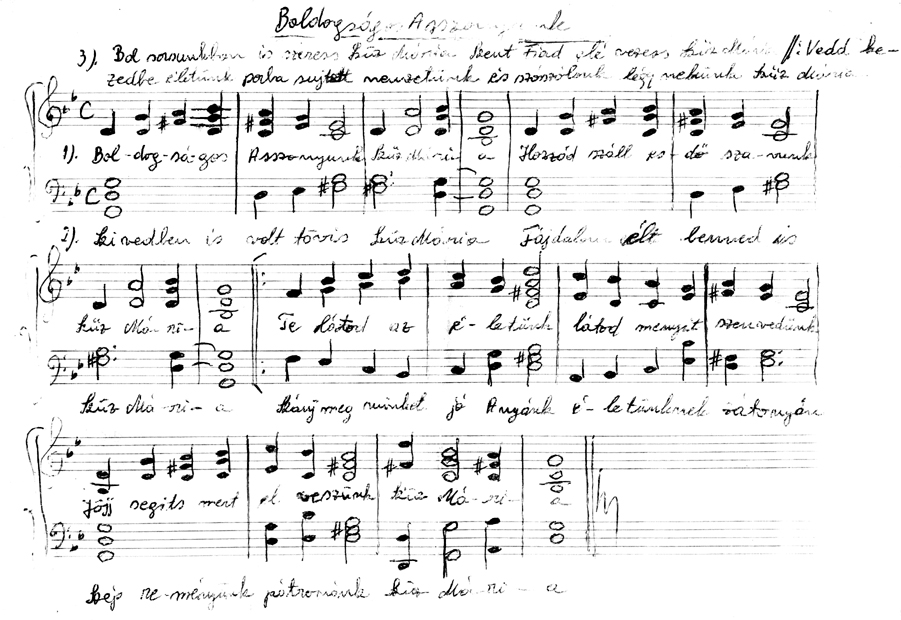 Boldogságos Asszonyunk
3). Bol sorsunkban is vezess Szűz Mária Szent Fiad elé vezess Szűz Mária //: Vedd ke-
zedbe életünk porba sujtott nemzetünk és szószólónk légy nekünk Szűz Mária
1). Bol-dog-sá-gos Asszonyunk Szűz Mári-a Hozzád száll es-dő sza-vunk
2). Szivedben is volt tövis Szűz Mária Fájdalom élt benned is
Szűz Má-ri-a Te látod az é-letünk látod mennyit szenvedünk
Szűz Má-ri-a Szánj meg minket jó Anyánk é-letünknek zátonyán
Jöjj segits mert el veszünk Szűz Má-ri-a
Szép re-ményünk pátronánk Szűz Má-ri-a